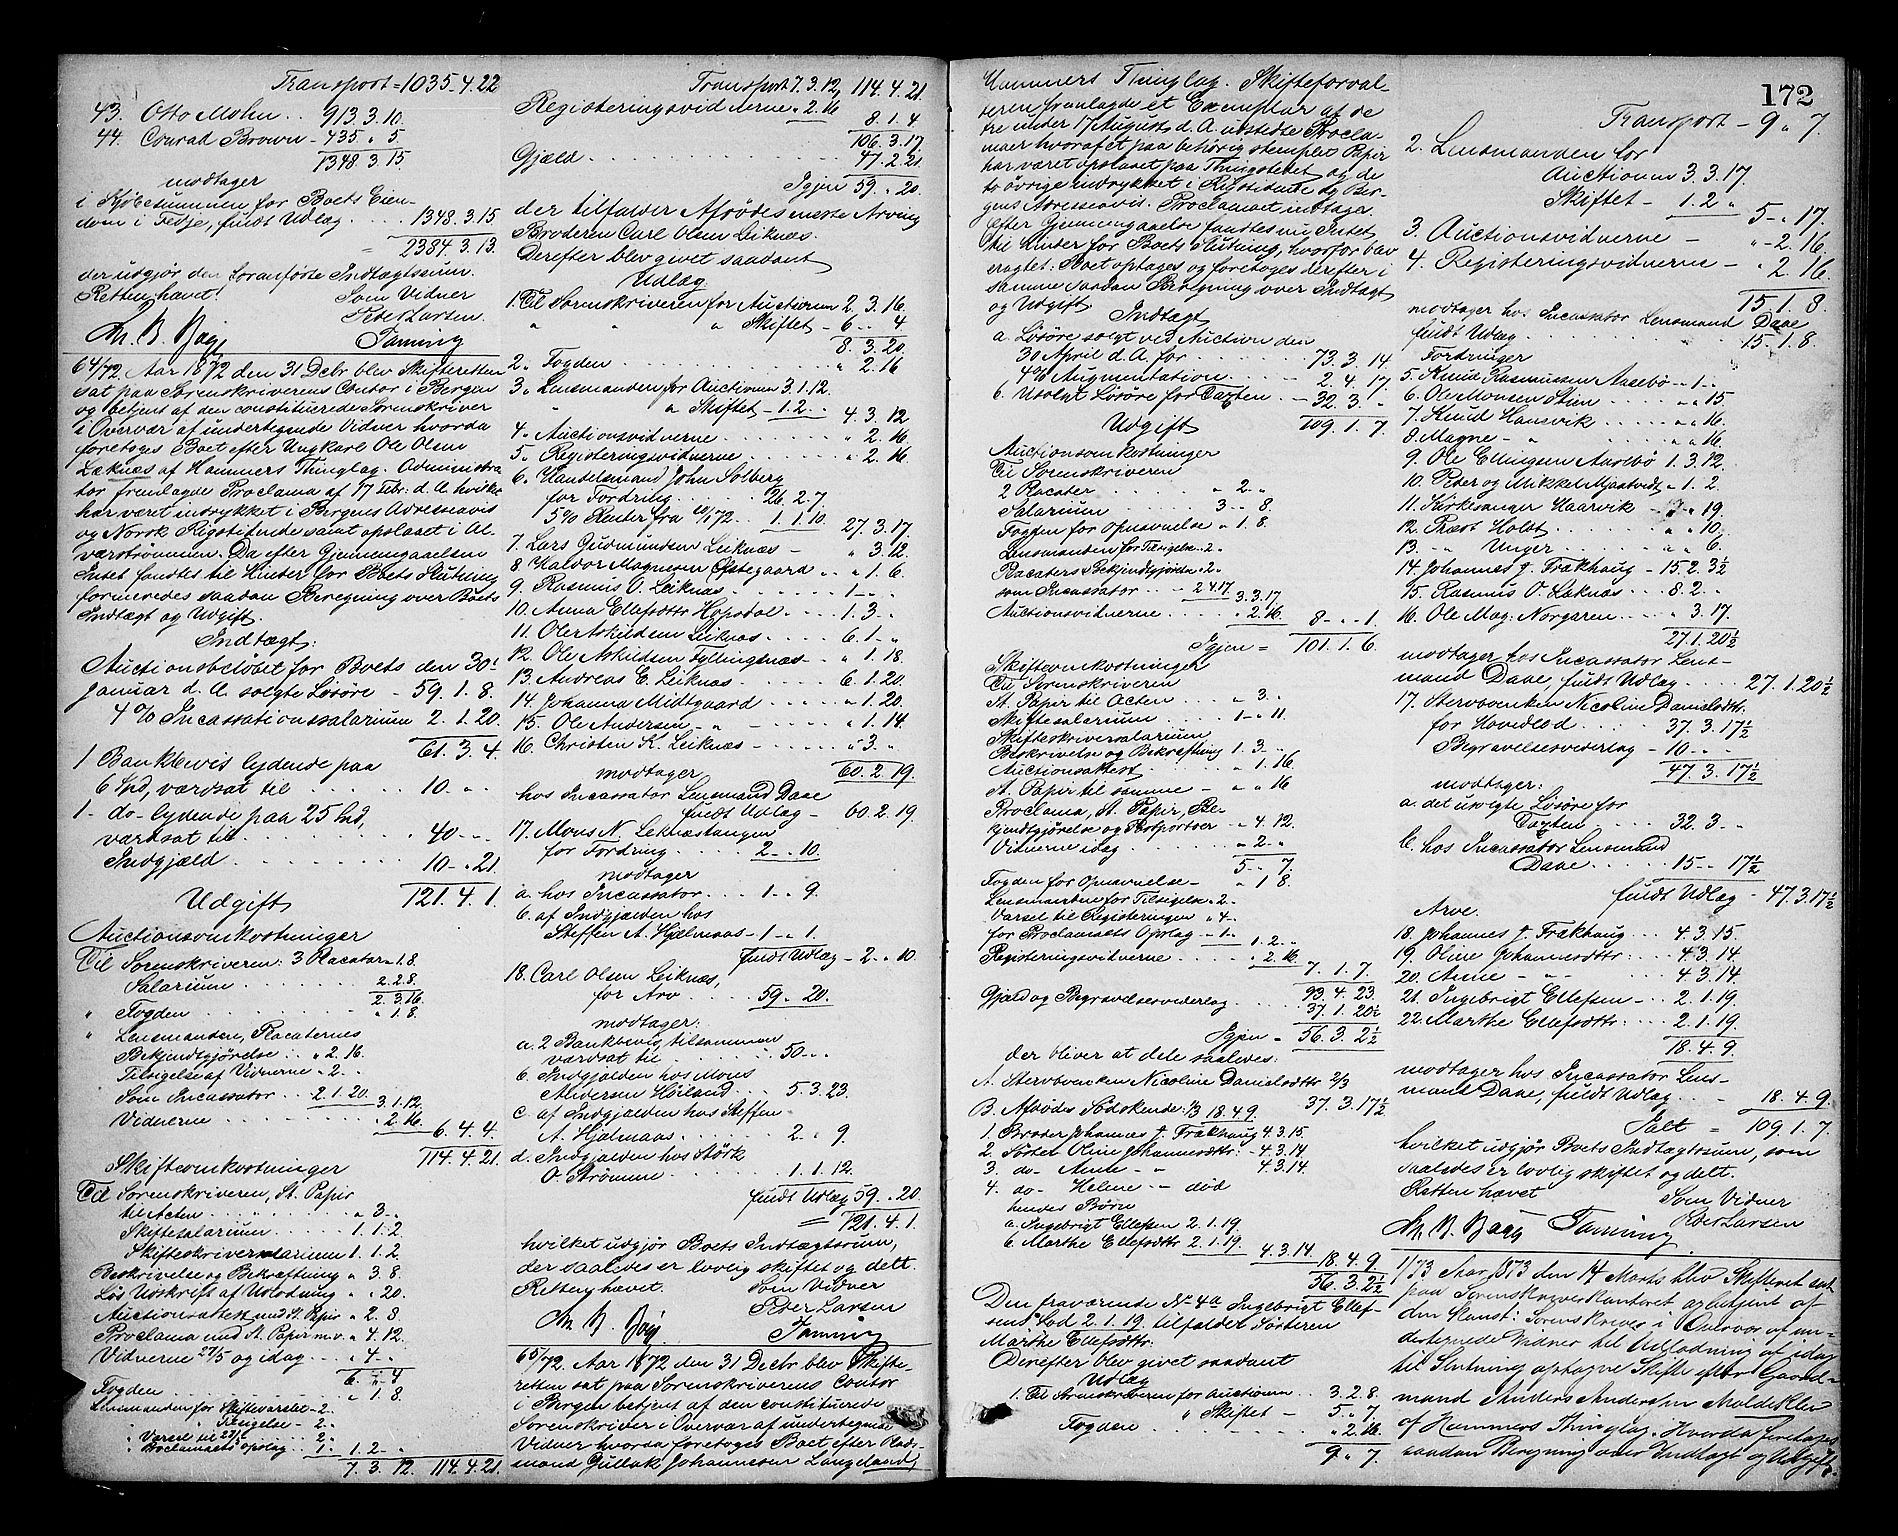 Transport = 1035-4.22
43. Otto Mohn .. 913.3.10.
44. Conrad Brown - 435 " 5
1348.3.15
modtager
i Kjöbesummen for Boets Eien-
dom i Fedje, fuldt Udlæg .... 1348.3.15
= 2384.3.13.
der udgjør den foranførte Indtægtssum.
Retten hævet! Som Vidner
Peder Larsen.
Tanning
64/72. Aar 1872 den 31 Decbr blev Skifteretten
sat paa Sorenskriverens Contor i Bergen
og betjent af den constituerede Sorenskriver
i Overvær af undertegnede Vidner hvorda
foretoges Boet efter Ungkarl Ole Olsen
Leknæs af Hammers Thinglag. Administra-
tor fremlagde Proclama af 17 Febr. d. A. hvilke
har været indrykket i Bergens Adresseavis
og Norsk Rigstidende samt opslaaet i Al-
værstrømmen. Da efter Gjennemgaaelsen
Intet fandtes til Hinder for Boets Slutning
formeredes saadan Beregning over Boets
Indtægt og Udgift.
Indtægt:
Auctionsbeløbet for Boets den 30te
Januar d. A. solgte Løsøre - 59.1.8.
4% Incassationssalarium 2.1.20.
61.3.4.
1 Bankbevis lydende paa
6 Spd, værdsat til ..... 10. " "
1 - do - lydende paa 25 Spd,
værdsat til ........ 40 - "
Indgjæld ......... 10 - " 21.
121.4.1.
Udgift
Auctionsomkostninger
Til Sorenskriveren: 3 Placater " 1.8.
Salarium ..... 2.2.8.
2.3.16.
" Fogden ........ " 1.8.
" Lensmanden, Placaternes
Bekjendtgjørelse .. " 2.16.
Tilsigelse af Vidnerne " 2. "
Som Incassator .. 2.1.20.
3.1.12.
Vidnerne ........ " 2.16.
6.4.4.
114.4.21.
Skifteomkostninger
Til Sorenskriveren, St. Papir
til Acten ...... " 3 - "
Skiftesalarium .... 1.1.2.
Skifteskriversalarium 1.1.2.
Beskrivelse og Bekræftning " 3.8.
Løs Udskrift af Udlodning " " 20.
Auctionsattest med St. Papir " 2.8
Proclama med St. Papir m.v. " 4.12.
Vidnerne 27/5 og idag ... " 4 - "
6 " 4
Fogden ......... " 1.8.
Lensmanden for Skiftevarslet - 2.
" Tilsigelse - 2.
" Varsel til 27/5 .... 2.
" Proclamaets opslag .. 1. 1.2 - "
7.3.12. 114.4.21.
Transport 7.3.12, 114.4.21.
Registeringsvidnerne " 2.16
8.1.4
106.3.17.
Gjæld ........ 47.2.21
Igjen 59. " 20.
der tilfalder Afdødes eneste Arving
Broderen Carl Olsen Leiknæs.
Derefter blev givet saadant
Udlæg
1. Til Sorenskriveren for Auctionen 2.3.16.
" " " Skiftet - 6 - " 4
8.3.20.
2. Fogden ....... " 2.16
3. Lensmanden for Auctionen 3.1.12.
" " Skiftet - 1.2 -
4.3.12
4. Auctionsvidnerne ..... " 2.16.
5. Registeringsvidnerne ... " 2.16.
6. Handelsmand John Solberg
for Fordring ..... 26.2.7
5% Renter fra 10/1 72 .. 1.1.10.
27.3.17.
7. Lars Gudmundsen Leiknæs - " 3.12.
8 Haldor Magnesen Østegaard .. " 1.6.
9. Rasmus O. Leiknæs ... 1 - "
10. Anna Ellefsdtr Hopsdal .. 1.3 - "
11. Ole Askildsen Leiknæs .... 6.1 - "
12. Ole Askildsen Fyllingsnæs - " 1.18.
13. Andreas E. Leiknæs ..... 6.1.20.
14. Johanna Midtgaard .... " 1.20.
15. Ole Andersen - " ... " 1.14.
16. Christen K. Leiknæs ..... " 3 "
60.2.19.
modtager
hos Incassator Lensmand Daae
fuldt Udlæg - 60.2.19.
17. Mons N. Leknæstangen
for Fordring ..... 2 - " 10.
modtager
a. hos Incassator ... 1 - " 9.
b. af Indgjælden hos
Steffen A. Hjelmaas - 1 - " 1.
fuldt Udlæg - 2 - " 10.
18. Carl Olsen Leiknæs,
for Arv ..... 59. " 20.
modtager:
a. 2 Bankbevis tilsammen
værdsat til .... 50 - "
b. Indgjælden hos Mons
Andersen Høiland ... 5.3.23.
c. af Indgjælden hos Steffen
A. Hjelmaas ..... 2 " 9.
d. Indgjælden hos Størk
O. Strømme ..... 1.1.12.
fuldt Udlæg 59. " 20
= 121.4.1.
hvilket udgjør Boets Indtægtssum,
der saaledes er lovlig skiftet og delt.
Retten hævet. Som Vidner
Peder Larsen
Tanning
65/72. Aar 1872 den 31 Decbr blev Skifte-
retten sat paa Sorenskriverens Contor
i Bergen betjent af den constituerede
Sorenskriver i Overvær af undertegnede
Vidner hvorda foretoges Boet efter Gaard-
mand Gullak Johannesen Langeland,
172
Hammers Thinglag. Skifteforval-
teren fremlagde et Exemplar af de
tre under 17 August d. A. udstedte Procla-
maer hvoraf et paa behørig stemplet Papir
har været opslaaet paa Thingstedet og de
to øvrige indrykket i Rigstidende og Ber-
gens Adresseavis. Proclamaet indtages.
Efter Gjennemgaaelse fandtes nu Intet
til Hinder for Boets Slutning, hvorfor blev
eragtet: Boet optages og foretoges derefter i
samme saadan Beregning over Indtægt
og Udgift
Indtægt
a. Løsøre solgt ved Auction den
30 April d. A. for ...... 73.3.14.
4% Augmentation .... 2.4.17.
b. Usolgt Løsøre for Taxten .. 32.3. "
109.1.7.
Udgift
Auctionsomkostninger
Til Sorenskriveren
2 Placater ..... " 2 - "
Salarium .... 3 - " 8.
Fogden for Opnævnelse " 1.8.
Lensmanden for Tilsigelse " 2 -
Placaters Bekjendtgjørelse " 2 -
som Incassator ... 2.4.17
3.3.17
Auctionsvidnerne ..... " 2.16.
8 - " 1.
Igjen = 101.1.6.
Skifteomkostninger
Til Sorenskriveren
St. Papir til Acten .... " 3 - "
Skiftesalarium .... 1 - " 11.
Skifteskriversalarium,
Beskrivelse og Bekræftning 1.3. "
Auctionsattest ..... " 1.16
St. Papir til samme - " " 16
Proclama, St. Papir, Be-
kjendtgjørelse og Postportoer " 4.12.
Vidnerne idag ..... " 2 - "
5 - " 7.
Fogden for Opnævnelse - " 1.8.
Lensmanden for Tilsigelse " 2 -
Varsel til Registeringen " 4 -
for Proclamaets Opslag " 1 -
1.2. "
Registeringsvidnerne .... " 2.16
7.1.7.
93.4.23.
Gjæld og Begravelsesvederlag .... 37.1.20½
Igjen = 56.3.2½
der bliver at dele saaledes:
A. Stervboenken Nicoline Danielsdtr 2/3
37.3.17½
B. Afdødes Sødskende: 1/3 18.4.9.
1. Broder Johannes J. Frækhaug 4.3.15.
2. Søster Oline Johannesdtr: - 4.3.14
3. do - Anne - " 4.3.14.
4. do - Helene - død
hendes Børn
a. Ingebrigt Ellefsen 2.1.19.
b. Marthe Ellefsdtr 2.1.19.
4.3.14. 18.4.9.
56.3.2½
Den fraværende No 4a Ingebrigt Ellef-
sens Lod 2.1.19. tilfalder Søsteren
Marthe Ellefsdtr.
Derefter blev givet saadant
Udlæg
1. Til Sorenskriveren for Auctionen .. 3.2.8.
" Skiftet - 5. " 7
Fogden ........ " 2.16
9 " 7.
Transport - 9 " 7.
2. Lensmanden for
Auctionen 3.3.17.
Skiftet - 1.2 "
5 - " 17.
3. Auctionsvidnerne - " - 2.16
4. Registeringsvidnerne - " 2.16.
15.1.8.
modtager hos Incassator Lensmand Daae
fuldt Udlæg ........ 15.1.8
Fordringer
5. Knud Rasmussen Aasebø - 1 - "
6. Ole Monsen Steen .... " " 15
7. Knud Hansvik ..... " " 16.
8. Magne - " .... " " 16.
9. Ole Ellingsen Aarebø 1.3.12.
10. Peder og Mikkel Mjaatvedt " 1.2.
11. Kirkesanger Haarvik - " " 19.
12. Præst Holdt .... " " 10.
13. " Unger .... " " 6.
14 Johannes J. Frækhaug - 15.2.3½
15. Rasmus O. Leknæs .. 8.2 - "
16. Ole Mag. Norgaren .. " 3.17.
27.1.20½
modtager hos Incassator Lens-
mand Daae, fuldt Udlæg .... 27.1.20½
17. Stervboenken Nicoline Danielsdtr:
for Hovedlod ... 37.3.17½
Begravelsesvederlag - 10 - "
47.3.17½
modtager:
a. det usolgte Løsøre for
Taxten .... 32.3. "
b. hos Incassator Lensmand
Daae ..... 15 - " 17½
fuldt Udlæg - 47.3.17½
Arve.
18. Johannes J. Frækhaug .. 4.3.15.
19. Oline Johannesdtr: .. 4.3.14
20. Anne - " - 4.3.14
21. Ingebrigt Ellefsen - .. 2.1.19.
22. Marthe Ellefsdtr: ... 2.1.19.
18.4.9.
modtager hos Incassator Lens-
mand Daae, fuldt Udlæg .. - 18.4.9.
Ialt = 109.1.7.
hvilket udgjør Boets Indtægtssum, som
saaledes er lovlig skiftet og delt.
Retten hævet Som Vidner
Peder Larsen
Tanning
1/73 Aar 1873 den 14 Marts blev Skifteret sat
paa Sorenskriverkontoret og betjent af
den Konst: Sorenskriver i Overvær af un-
dertegnede Vidner til Udlodning af idag
til Slutning optagne Skifte efter Gaard-
mand Anders Andersen Moldeklev
af Hammers Thinglag. Hvorda foretoges
saadan Beregning over Indtægt og Udgift: